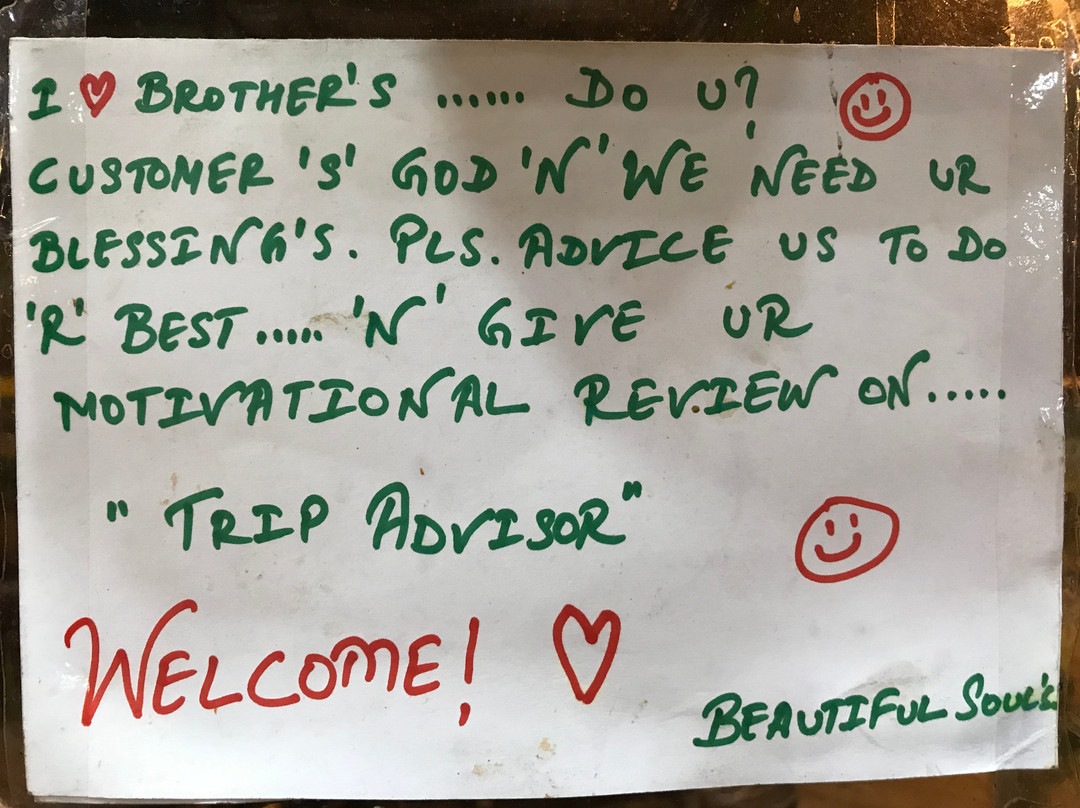 I ♥ BROTHER'S ...... DO U?
CUSTOMER 'S' GOD 'N' WE 'NEED UR
BLESSING'S. PLS. ADVICE US TO DO
'R' BEST ..... 'N' GIVE UR
MOTIVATIONAL REVIEW ON .....
" TRIP ADVISOR"
WELCOME! ♥
BEAUTIFUL SOUL'S